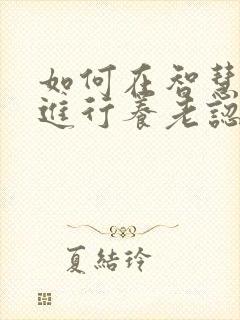 如何在智慧
進行養老認
夏結玲